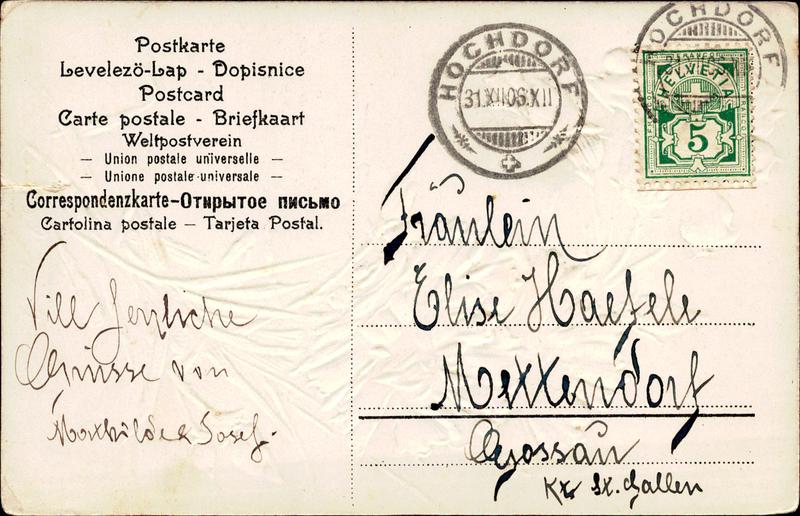 Postkarte
Levelezö-Lap - Dopisnice
Postcard
Carte postale - Briefkaart
Weltpostverein
— Union postale universelle —
— Unione postale universale —
Correspondenzkarte-Открытое письмо
Cartolina postale — Tarjeta Postal.
HOCHDORF
31.XII.06.XII
HOCHDORF
HELVETIA
FRANCO
5
Fräulein
Elise Haefele
Mettendorf
Gossau
Kt. St. Gallen
Vill herzliche
Grüsse von
Mathilde & Josef.